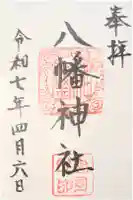 奉拝
八幡神社
令和七年四月六日